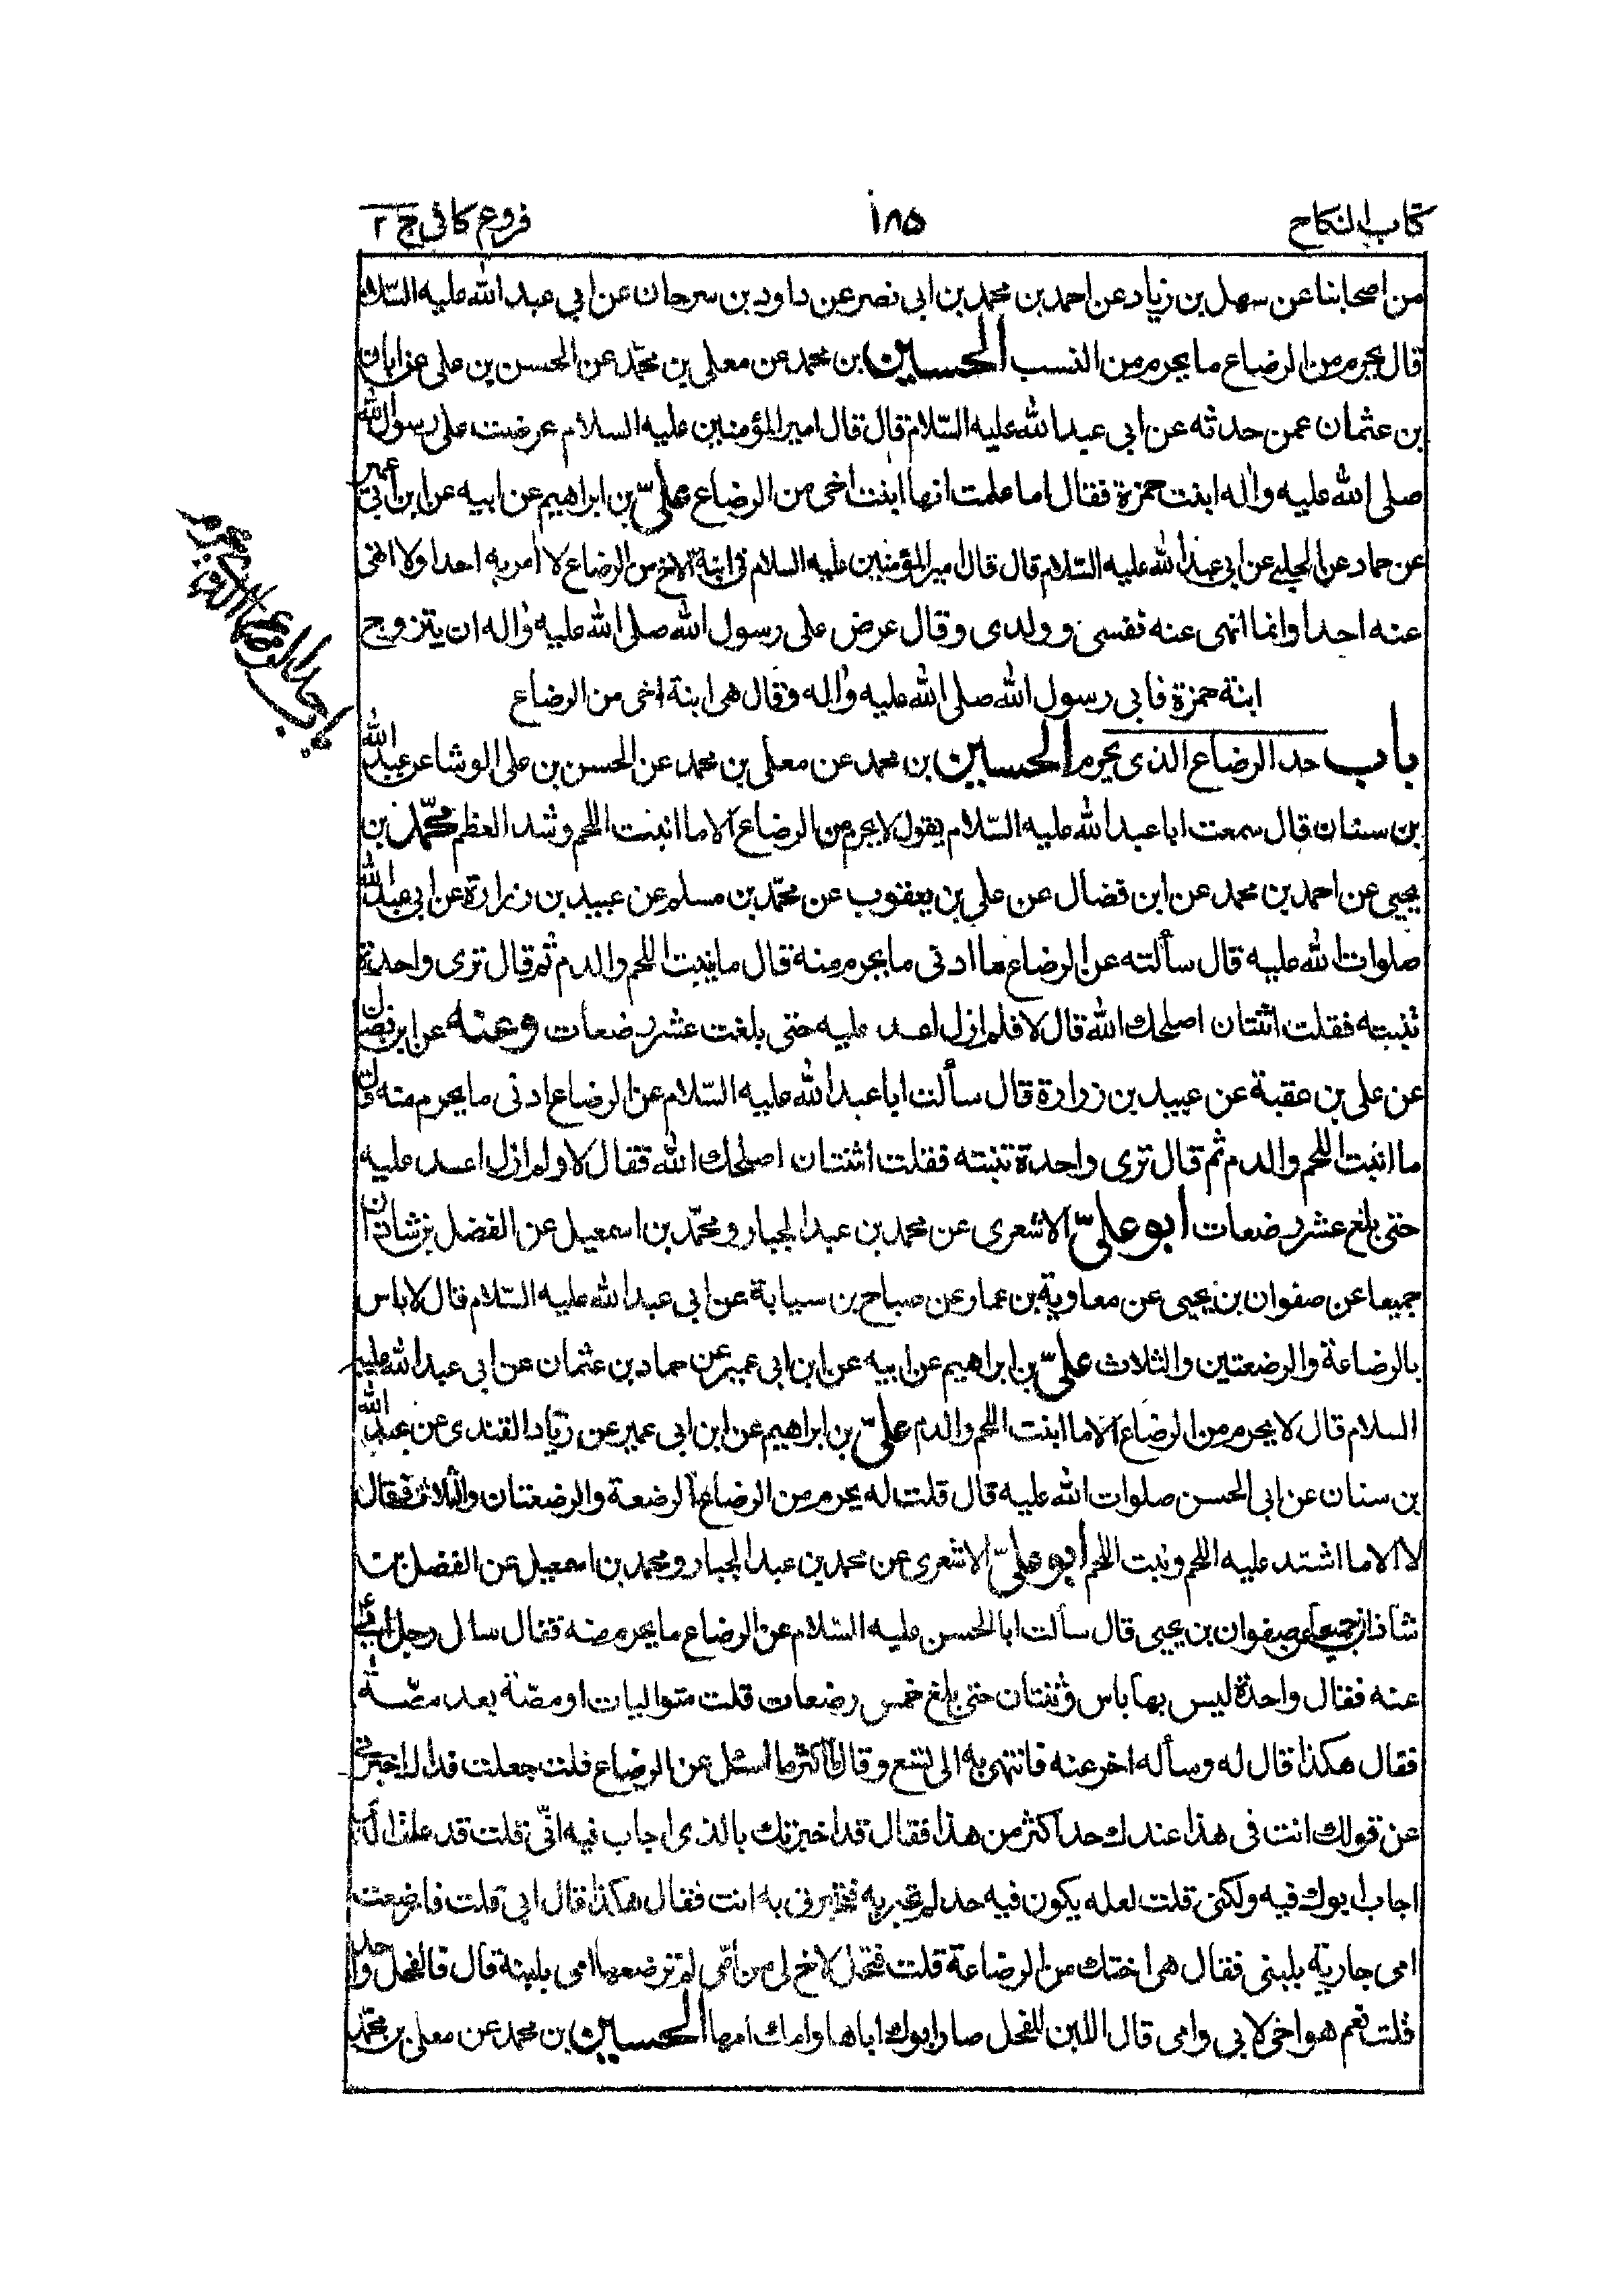 كتاب النكاح
١٨٥
فروع كافى ج ٢
من اصحابنا عن سهل بن زياد عن احمد بن محمد بن ابى نصر عن داود بن سرحان عن ابي عبد الله عليه السّلام
قال يحرم من الرضاع ما يحرم من النسب الحسين بن محمد عن معلى بن محمّد عن الحسن بن على عن ابان
بن عثمان عمن حدثه عن ابى عبد الله عليه السّلام قال قال امير المؤمنين عليه السلام عرضت على رسول الله
صلى الله عليه واله ابنت حمزة فقال اما علمت انها ابنت اخى من الرضاع علىّ بن ابراهيم عن ابيه عن ابن ابي عمير
عن حماد عن الحلبي عن ابي عبد الله عليه السّلام قال قال امير المؤمنين عليه السلام فى ابنة الاخ من الرضاع لا امر به احدا ولا انهى
عنه احدا وانما انهى عنه نفسى وولدى وقال عرض على رسول الله صلى الله عليه واله ان يتزوج
ابنة حمزة فابى رسول الله صلى الله عليه واله وقال هى ابنة اخى من الرضاع
باب حد الرضاع الذى يحرم الحسين بن محمد عن معلى بن محمد عن الحسن بن على الوشا عن عبد الله
بن سنان قال سمعت ابا عبد الله عليه السّلام يقول لا يحرم من الرضاع الا ما انبت اللحم وشد العظم محمّد بن
يحيى عن احمد بن محمد عن ابن فضال عن على بن يعقوب عن محمّد بن مسلم عن عبيد بن زرارة عن ابي عبد الله
صلوات الله عليه قال سألته عن الرضاع ما ادنى ما يحرم منه قال ما ينبت اللحم والدم ثم قال ترى واحدة
تنبته فقلت اثنتان اصلحك الله قال لا فلم ازل اعد عليه حتى بلغت عشر رضعات وعنه عن ابن فضال
عن على بن عقبة عن عبيد بن زرارة قال سألت ابا عبد الله عليه السّلام عن الرضاع ادنى ما يحرم منه قال
ما انبت اللحم والدم ثم قال ترى واحدة تنبته فقلت اثنتان اصلحك الله فقال لا ولم ازل اعد عليه
حتى بلغ عشر رضعات أبو علىّ الاشعرى عن محمد بن عبد الجبار ومحمّد بن اسمعيل عن الفضل بن شاذان
جميعا عن صفوان بن يحيى عن معاوية بن عمار عن صباح بن سيابة عن ابى عبد الله عليه السّلام قال لا باس
بالرضاعة والرضعتين والثلاث علىّ بن ابراهيم عن ابيه عن ابن ابى عمير عن حماد بن عثمان عن ابى عبد الله عليه
السلام قال لا يحرم من الرضاع الا ما انبت اللحم والدم علىّ بن ابراهيم عن ابن ابى عمير عن زياد القندى عن عبد الله
بن سنان عن ابى الحسن صلوات الله عليه قال قلت له يحرم من الرضاع الرضعة والرضعتان والثلاث فقال
لا الا ما اشتد عليه اللحم ونبت اللحم أبو علىّ الاشعرى عن محمد بن عبد الجبار ومحمد بن اسمعيل عن الفضل بن
شاذان جميعا عن صفوان بن يحيى قال سألت ابا الحسن عليه السّلام عن الرضاع ما يحرم منه فقال سال رجل ابي
عنه فقال واحدة ليس بها باس وثنتان حتى بلغ خمس رضعات قلت متواليات او مصّة بعد مصّة
فقال هكذا قال له وسأله اخر عنه فانتهى به الى تسع وقال ما اكثر ما اسئل عن الرضاع فلت جعلت فداك اخبرني
عن قولك انت فى هذا عندك حد اكثر من هذا فقال قد اخبرتك بالذى اجاب فيه ابى قلت قد علمت الذى
اجاب ابوك فيه ولكنى قلت لعله يكون فيه حد لم يخبر به فتخبرنى به انت فقال هكذا قال ابي قلت فارضعت
امى جارية بلبنى فقال هى اختك من الرضاعة قلت فتحل لاخ لى من امّى لم ترضعها امى بلبنه قال فالفحل واحد
قلت نعم هو اخى لابى وامى قال اللبن للفحل صار ابوك اباها وامك امها الحسين بن محمد عن معلى بن محمّد